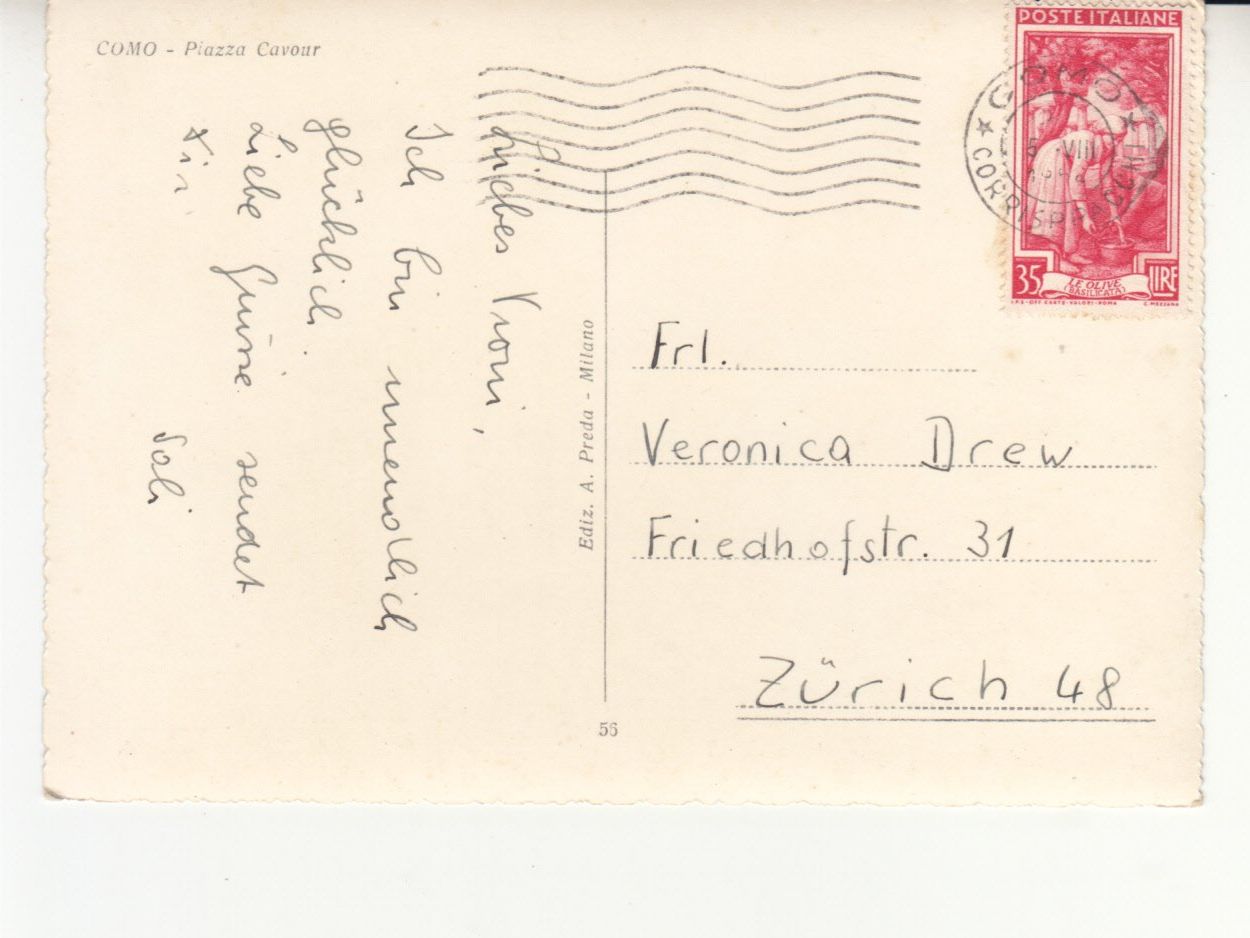 COMO - Piazza Cavour
POSTE ITALIANE
COMO
CORRISP. PACCHI
5 VIII
35 LIRE
LE OLIVE
(BASILICATA)
I.P.S.-OFF. CARTE-VALORI-ROMA
C. MEZZANA
Liebes Vroni,
Ich bin unendlich
glücklich.
Liebe Grüsse sendet
Dir
Ediz. A. Preda - Milano
56
Frl.
Veronica Drew
Friedhofstr. 31
Zürich 48